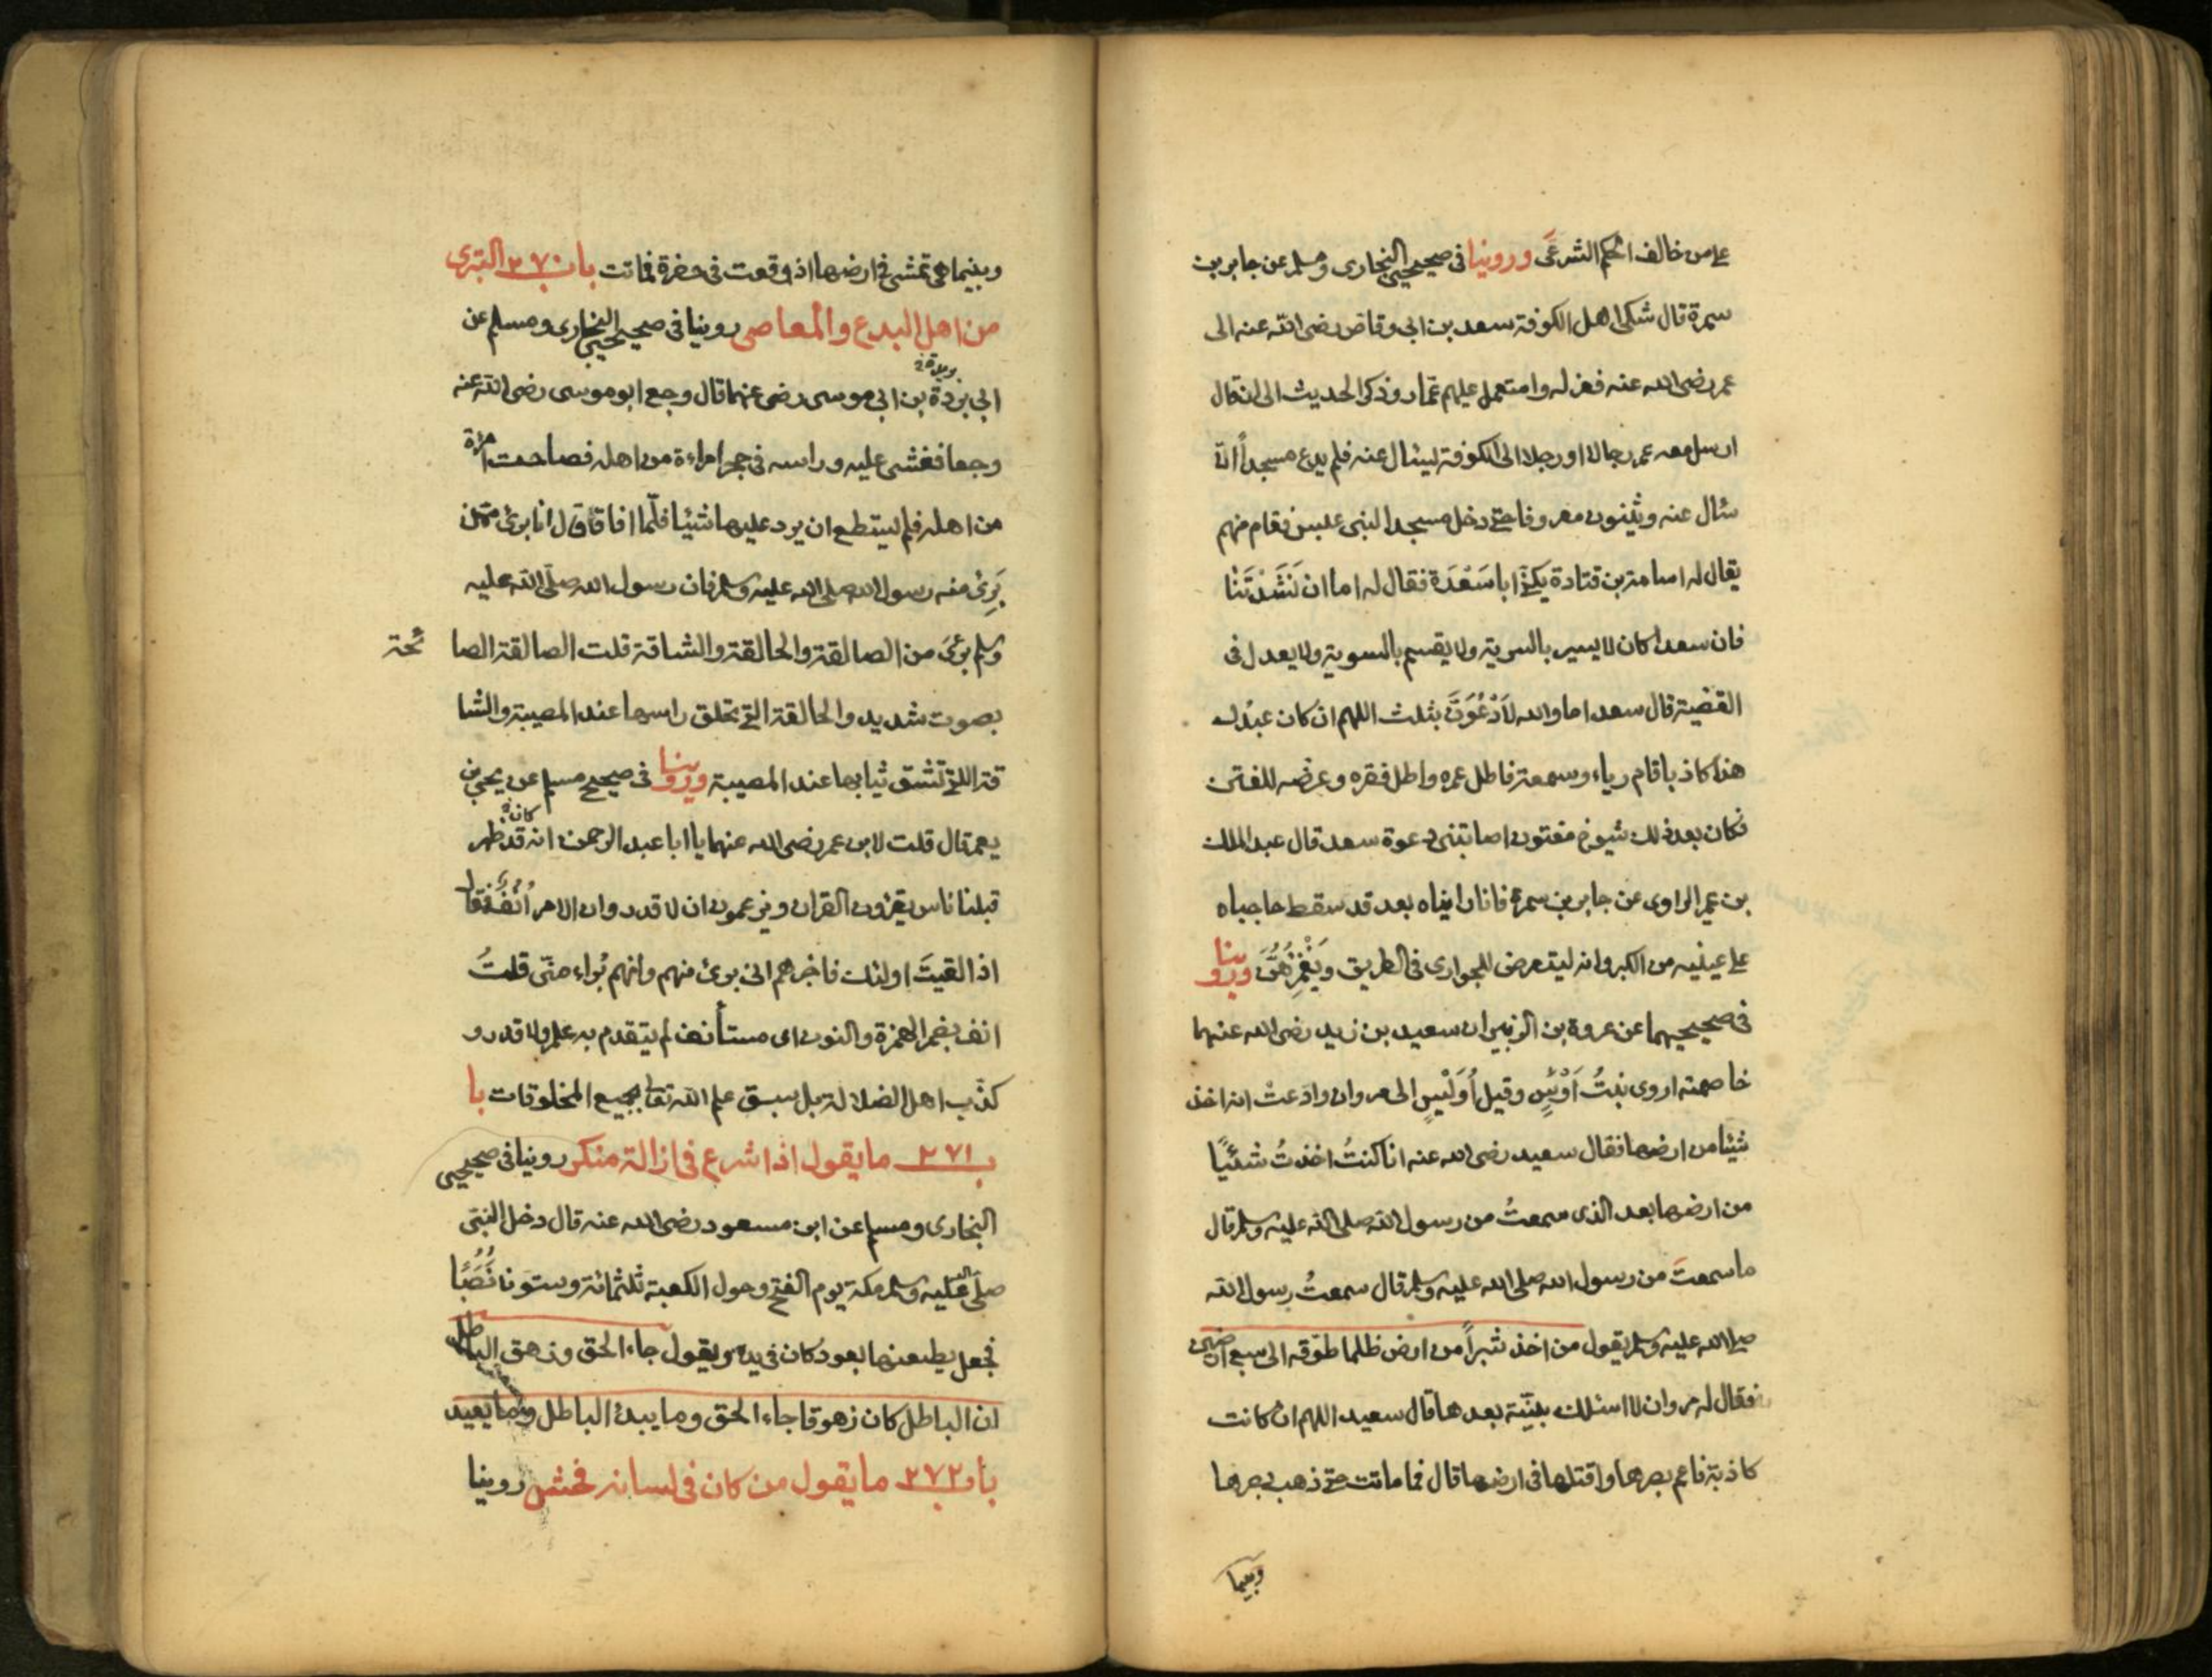 على من خالف الحكم الشرعى وروينا فى صحيحى البخارى ومسلم عن جابر بن
سمرة قال شكى اهل الكوفة سعد بن ابى وقاص رضى الله عنه الى
عمر رضى الله عنه فعزله واستعمل عليهم عمّار وذكر الحديث الى ان قال
ارسل معه عمر رجالا او رجلا الى الكوفة ليسال عنه فلم يدع مسجداً الا
سئال عنه ويثنون معروفا حتى دخل مسجدا لبنى عبس فقام منهم
يقال له اسامة بن قتادة يكنى ابا سَعْدَة فقال له اما ان نَشَدْتَنَا
فان سعدا كان لا يسير بالسرية ولا يقسم بالسوية ولا يعدل فى
القضية قال سعد اما والله لَاَدْعُوَنَّ بثلث اللهم ان كان عبدك
هذا كاذبا قام رياء وسمعة فاطل عمره واطل فقره وعرضه للفتن
فكان بعد ذلك شيوخ مفتون اصابتنى دعوة سعد قال عبد الملك
بن عمير الراوى عن جابر بن سمرة فانا رايناه بعد قد سقط حاجباه
على عينيه من الكبر وانه ليتعرض للجوارى فى الطريق ويَغْمِزُهُنَّ وروينا
فى صحيحيهما عن عروة بن الزبير ان سعيد بن زيد رضى الله عنهما
خاصمته اروى بنتُ اَوْسٍ وقيل اُوَيْسٍ الى مروان وادّعتْ انه اخذ
شيئا من ارضها فقال سعيد رضى الله عنه انا كنتُ اخذتُ شيئًا
من ارضها بعد الذى سمعتُ من رسول الله صلى الله عليه وسلم قال
ما سمعتَ من رسول الله صلى الله عليه وسلم قال سمعتُ رسول الله
صلى الله عليه وسلم يقول من اخذ شبراً من ارض ظلما طوّقه الى سبع ارضين
فقال له مروان لا اسئلك بيّنة بعد هذا قال سعيد اللهم ان كانت
كاذبة فاعم بصرها واقتلها فى ارضها قال فما ماتت حتى ذهب بصرها
وبينما
وبينما هى تمشى فى ارضها اذ وقعت فى حفرة فماتت باب ٣٧٠ التبرى
من اهل البدع والمعاصى روينا فى صحيحى البخارى ومسلم عن
ابى بردة بن ابى موسى رضى عنهما قال وجع ابو موسى رضى الله عنه
وجعا فغشى عليه وراسه فى حجر امراءة من اهله فصاحت امرءة
من اهله فلم يستطع ان يرد عليها شيئا فلمّا افاق قال انا برئ ممّن
بَرِئ منه رسول الله صلى الله عليه وسلم فان رسول الله صلّى الله عليه
وسلم برئ من الصالقة والحالقة والشاقة قلت الصالقة الصا ئحة
بصوت شديد والحالقة التى تحلق راسها عند المصيبة والشا
قة اللتى تشق ثيابها عند المصيبة وروينا فى صحيح مسلم عن يحيى بن
يعمر قال قلت لابن عمر رضى الله عنهما يا ابا عبد الرحمن انه قد ظهر
قبلنا ناس يقرؤن القران ويزعمون ان لا قدر وان الامر اُنُفٌ فقال
اذا لقيتَ اولئك فاخبرهم انى برئ منهم وأنهم بُراء منّى قلتُ
انف بضم الهمزة والنون اى مستأنف لم يتقدم به علم ولا قدر و
كذّب اهل الضلالة بل سبق علم الله تعالى بجميع المخلوقات با
ب ٣٧١ ما يقول اذا شرع فى ازالة منكر روينا فى صحيحى
البخارى ومسلم عن ابن مسعود رضى الله عنه قال دخل النبى
صلى الله عليه وسلم مكة يوم الفتح وحول الكعبة ثلثمائة وستون نُصُبًا
فجعل يطعنها بعود كان فى يده ويقول جاء الحق وزهق الباطل
ان الباطل كان زهوقا جاء الحق وما يبدئ الباطل وما يعيد
باب ٣٧٢ ما يقول من كان فى لسانه فحش روينا